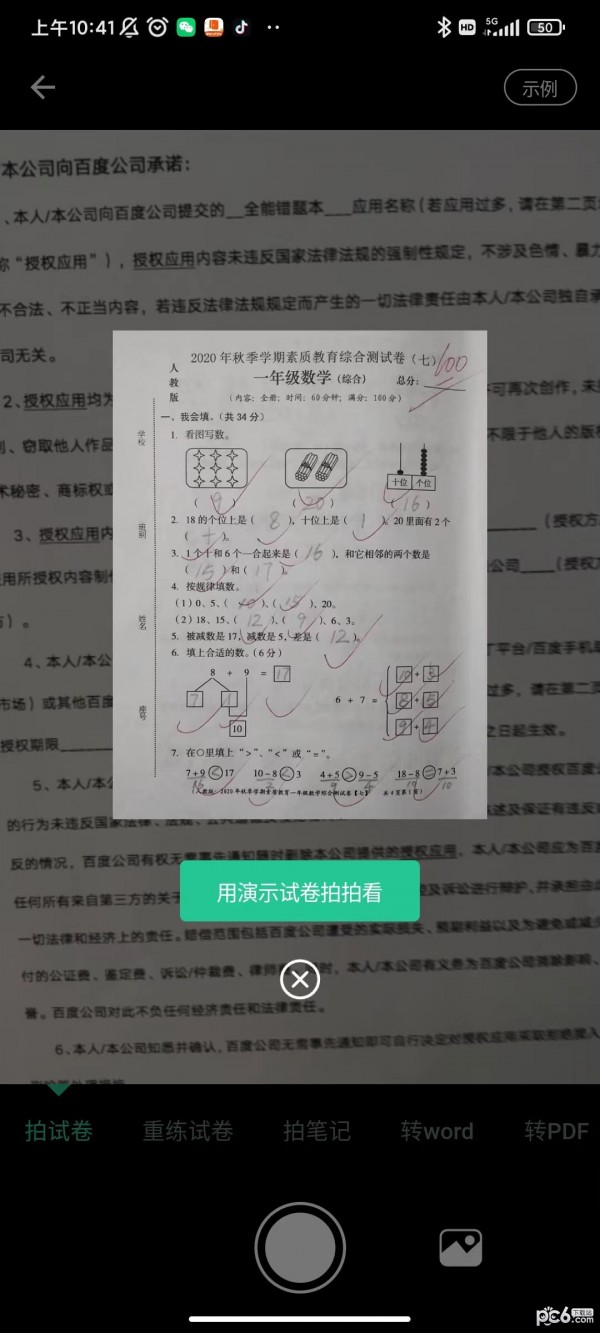 上午10:41
HD
5G
50
示例
本公司向百度公司承诺：
、本人/本公司向百度公司提交的__全能错题本___应用名称（若应用过多，请在第二页
“授权应用”），授权应用内容未违反国家法律法规的强制性规定，不涉及色情、暴
不合法、不正当内容，若违反法律法规规定而产生的一切法律责任由本人/本公司独自
司无关。
2、授权应用均为
可再次创作，未
、窃取他人作品
不限于他人的版
术秘密、商标权或
3、授权应用内
（授权方
用所授权内容制
公司____（授权方
4、本人/本公
平台/百度手机
市场）或其他百度
过多，请在第二页
授权期限
之日起生效。
5、本人/本公司
本公司授权百度公
的行为未违反国家法律、法规、
述及保证有违反
反的情况，百度公司有权无需事先通知随时删除本公司提供的授权应用。本人/本公司应为百
任何所有来自第三方的
及诉讼进行辩护，并承担由
一切法律和经济上的责任。赔偿范围包括百度公司遭受的实际损失、预期利益以及为避免或减
付的公证费、鉴定费、诉讼/仲裁费、律师
时，本人/本公司有义务为百度公司消除影响、
誉。百度公司对此不负任何经济责任和法律责任。
6、本人/本公司知悉并确认，百度公司无需事先通知即可自行决定对授权应用采取
人教版
2020年秋季学期素质教育综合测试卷（七）
100
一年级数学（综合） 总分：
（内容：全册；时间：60分钟；满分：100分）
学校
班别
姓名
座号
一、我会填。（共34分）
1. 看图写数。
十位 个位
（ 9 ） （ 20 ） （ 16 ）
2. 18的个位上是（ 8 ），十位上是（ 1 ）。20里面有2个
（ 十 ）。
3. 1个十和6个一合起来是（ 16 ），和它相邻的两个数是
（ 15 ）和（ 17 ）。
4. 按规律填数。
（1）0、5、（ 10 ）、（ 15 ）、20。
（2）18、15、（ 12 ）、（ 9 ）、6、3。
5. 被减数是17，减数是5，差是（ 12 ）。
6. 填上合适的数。（6分）
8 + 9 = 17
7 1
10
6 + 7 =
10 + 3
8 + 5
9 + 4
7. 在○里填上“>”、“<”或“=”。
7+9 < 17 10-8 < 3 4+5 > 9-5 18-8 = 7+3
16 2 9 4 10 10
（人教版）2020年秋季学期素质教育一年级数学综合测试卷【七】 共4页第1页
用演示试卷拍拍看
拍试卷 重练试卷 拍笔记 转word 转PDF
pc6下载站
.com